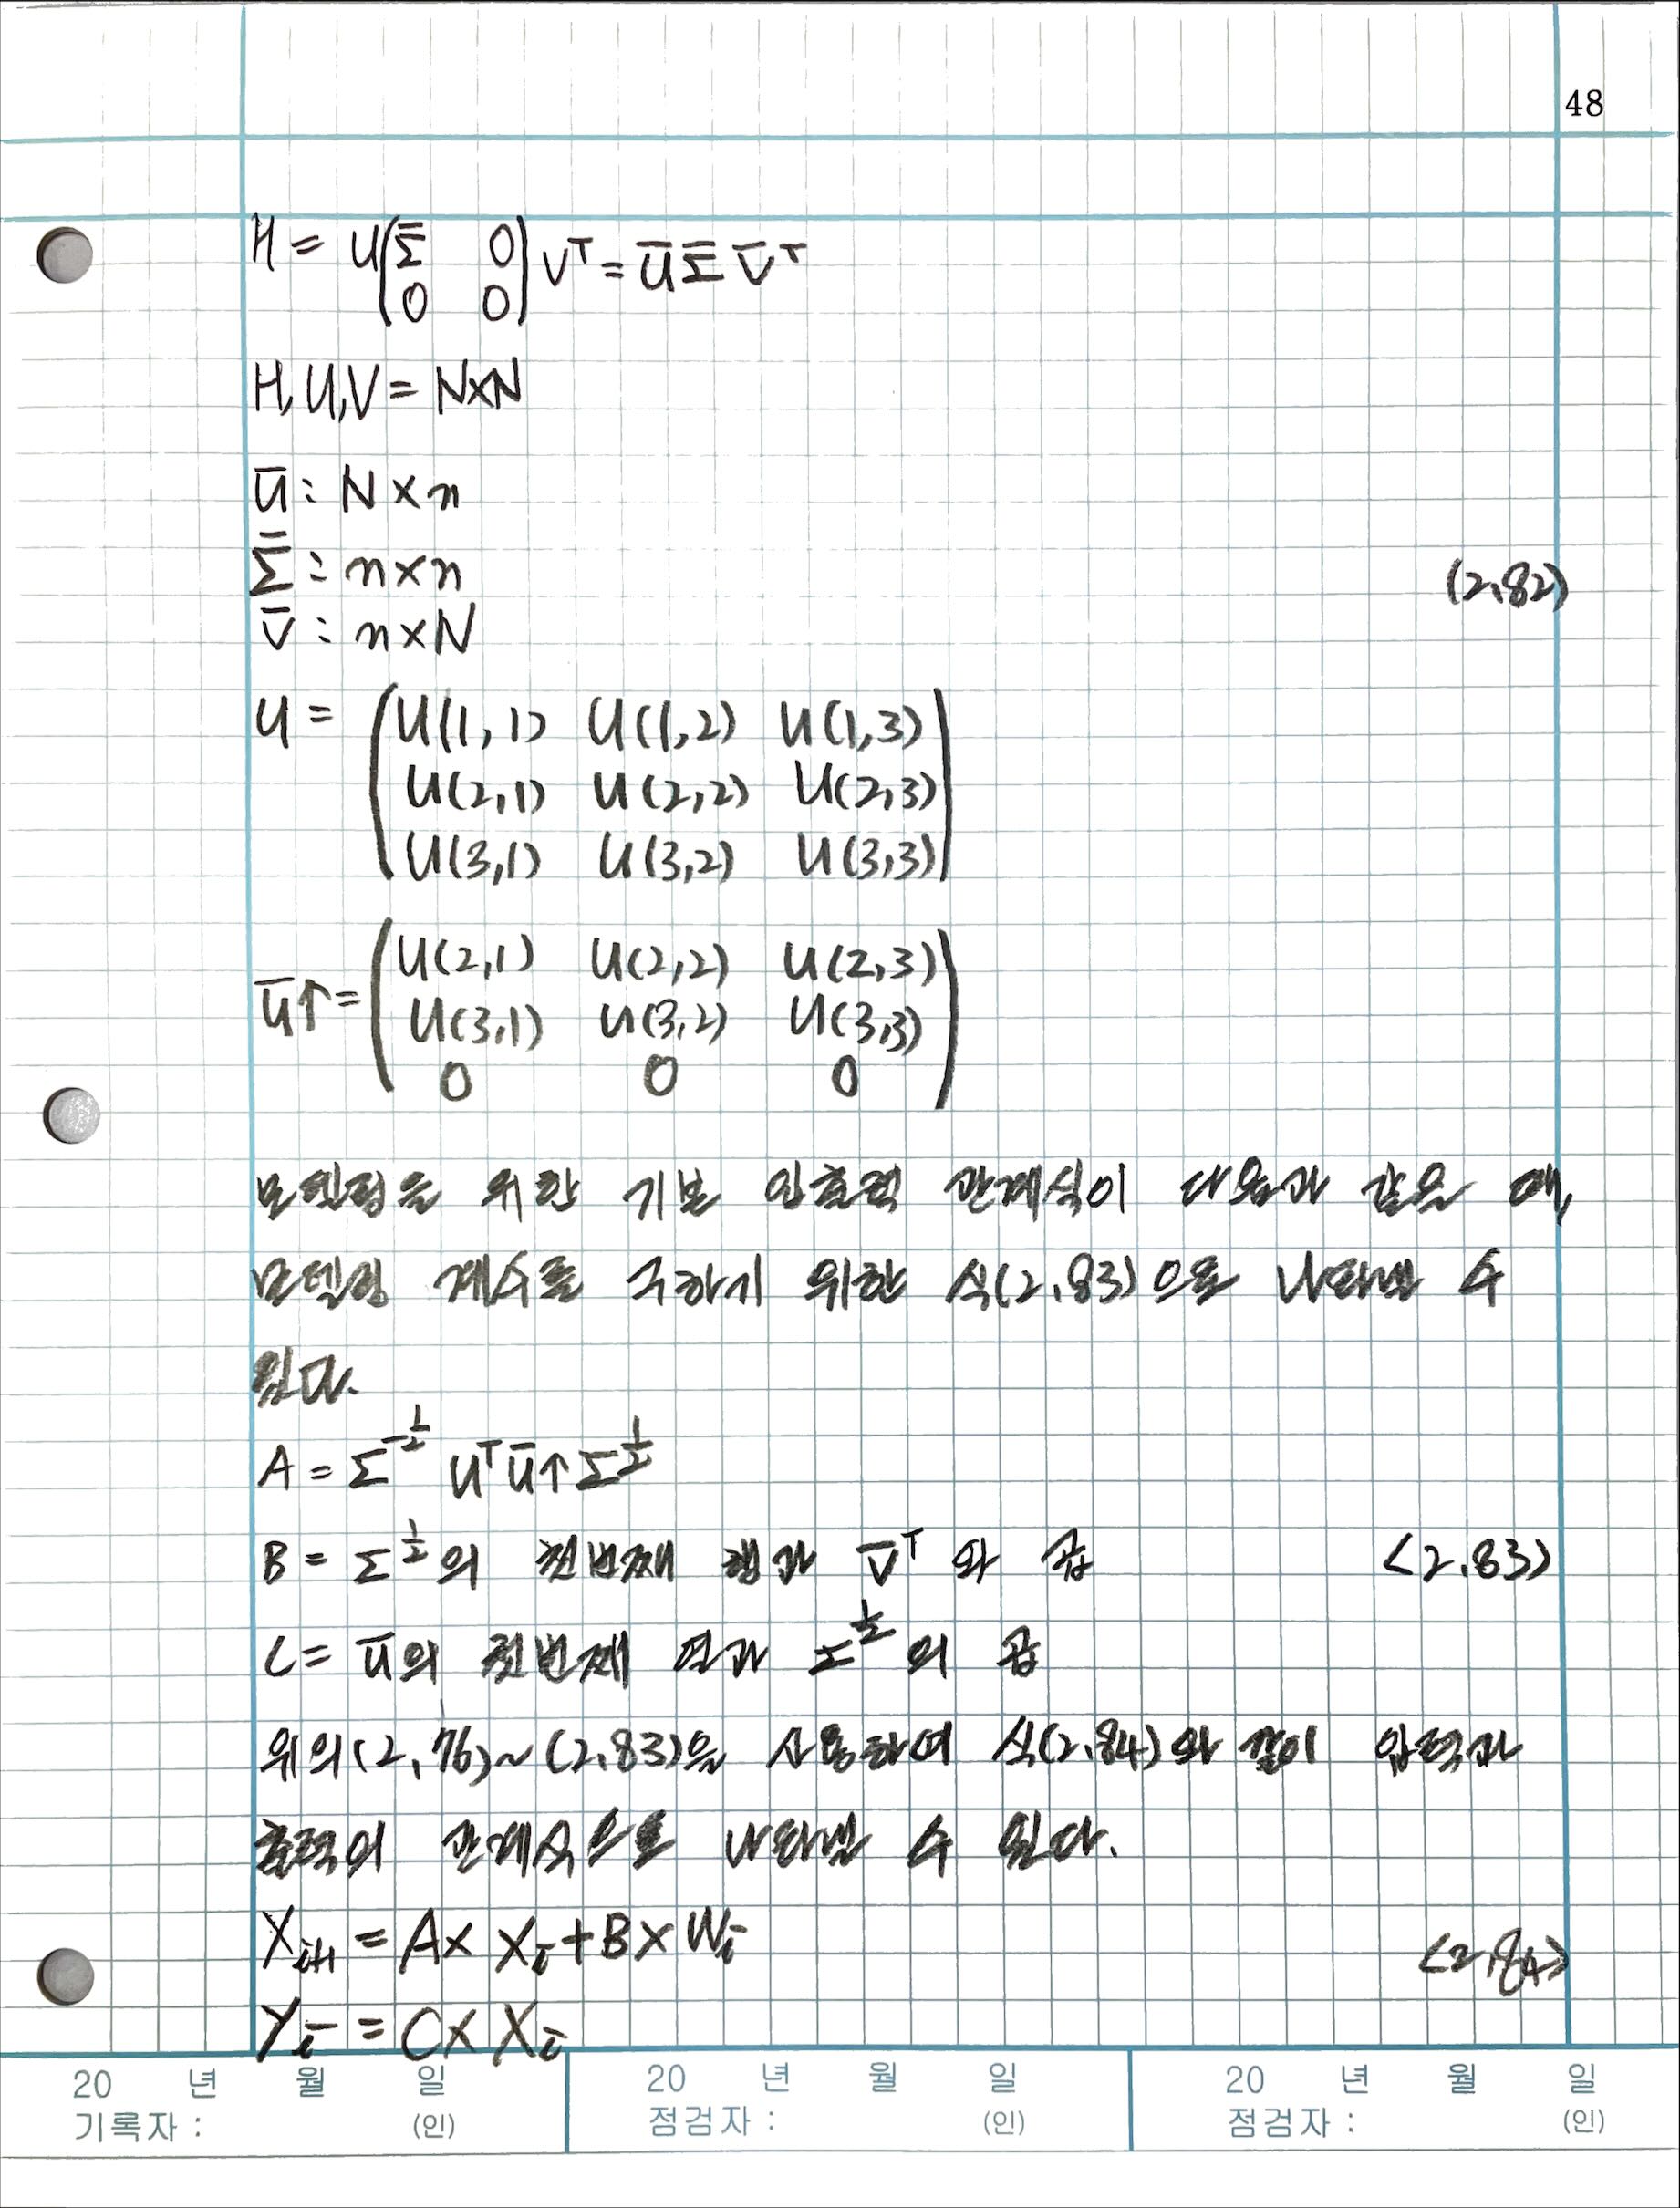 48
H = U(Σ̄ 0
0 0) Vᵀ = Ū Σ̄ V̄ᵀ
H, U, V = N×N
Ū : N × n
Σ̄ : n × n
(2.82)
V̄ : n × N
U = (U(1,1) U(1,2) U(1,3)
U(2,1) U(2,2) U(2,3)
U(3,1) U(3,2) U(3,3))
Ū↑ = (U(2,1) U(2,2) U(2,3)
U(3,1) U(3,2) U(3,3)
0 0 0)
모델링을 위한 기본 입출력 관계식이 다음과 같을 때,
모델링 계수를 구하기 위한 식(2.83)으로 나타낼 수
있다.
A = Σ^-½ Uᵀ Ū↑ Σ^½
B = Σ^½의 첫번째 행과 V̄ᵀ와 곱 <2.83)
C = Ū의 첫번째 열과 Σ^½의 곱
위의(2.76)~(2.83)을 사용하여 식(2.84)와 같이 입력과
출력의 관계식으로 나타낼 수 있다.
Xᵢ₊₁ = A× Xᵢ + B × Wᵢ
<2.84>
Yᵢ = C× Xᵢ
20 년 월 일 20 년 월 일 20 년 월 일
기록자 : (인) 점검자 : (인) 점검자 : (인)